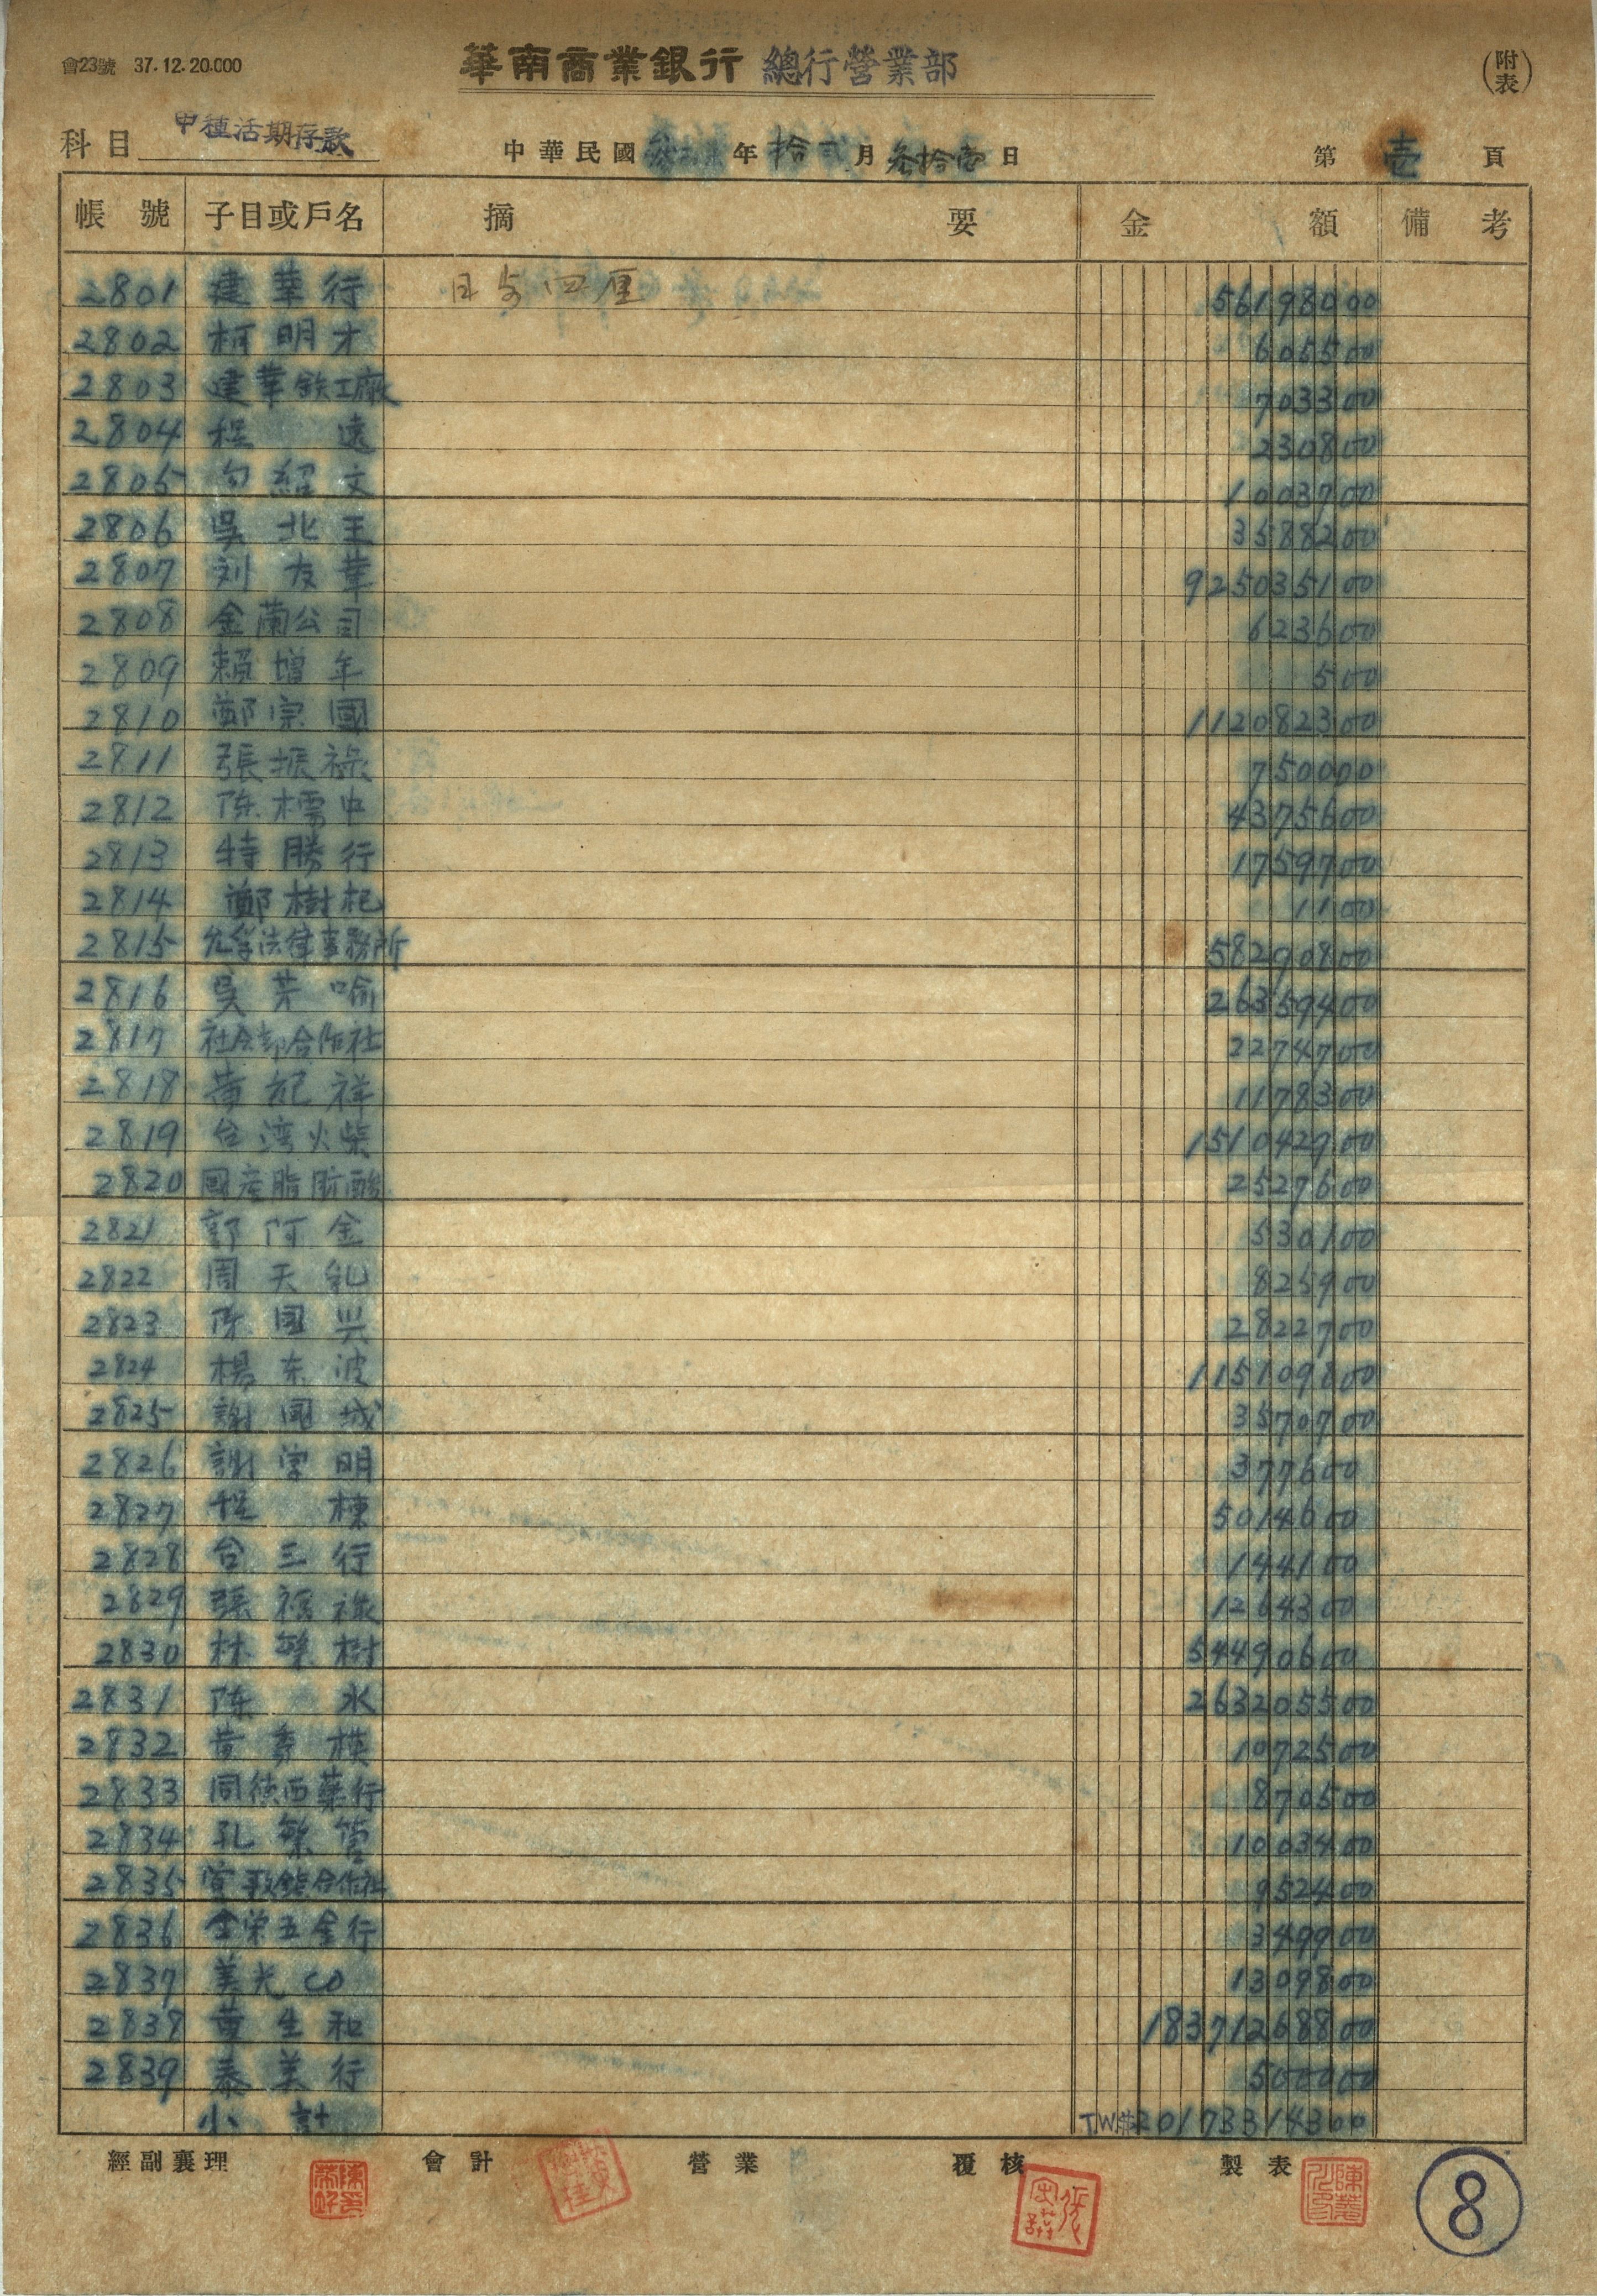 會23號 37.12.20.000
華南商業銀行 總行營業部
(附表)
科目 甲種活期存款 中華民國 年 拾弍 月 叁拾壹 日 第 壱 頁
帳號 子目或戶名 摘要 金額 備考
2801 建華行 日歩四厘 56198000
2802 柯明才 605500
2803 建華鉄工廠 703300
2804 程遠 230800
2805 向紹文 1003700
2806 吳北王 3588200
2807 刘友華 925035100
2808 金蘭公司 623600
2809 賴增年 500
2810 鄭宗國 112082300
2811 張振祿 750000
2812 陈樗中 4375600
2813 特勝行 1759700
2814 鄭樹杞 1100
2815 法律事務所 58290800
2816 吳芳喻 26359400
2817 社会部合作社 2274700
2818 黃祀祥 1178300
2819 台湾火柴 151042700
2820 國產脂肪酸 2527600
2821 郭阿金 530100
2822 周天乳 825900
2823 陈國兴 2822700
2824 楊东波 115109800
2825 謝國城 3570700
2826 謝学明 377600
2827 程棟 5014600
2828 台三行 144100
2829 張福祿 1264300
2830 林繁樹 54490600
2831 陈水 263205500
2832 黃秀模 1072500
2833 同德西藥行 870500
2834 孔繁管 1003400
2835 合作社 952400
2836 金荣五金行 349900
2837 美光CO 1309800
2838 黃生和 18371268800
2839 泰美行 500000
小計 TW$20173314300
經副襄理 會計 營業 覆核 製表
8